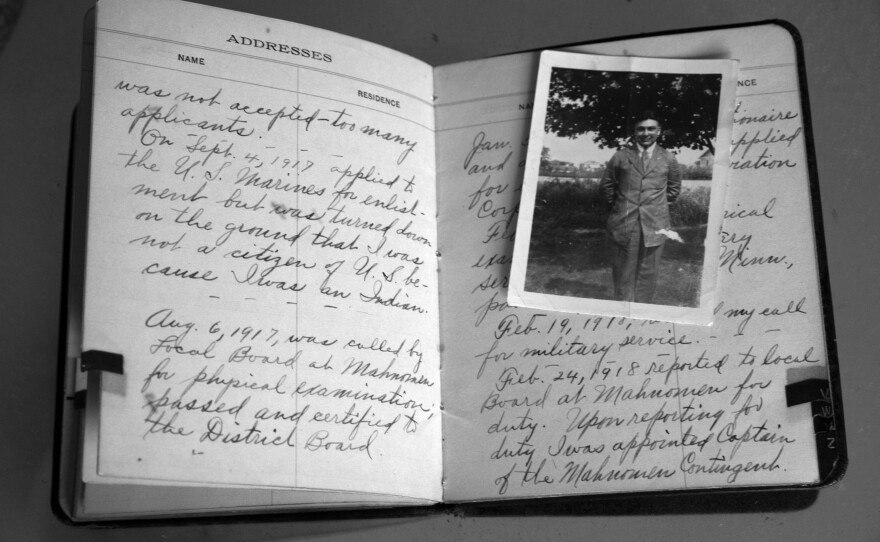 ADDRESSES
NAME
RESIDENCE
was not accepted - too many
applicants.
On Sept. 4, 1917 applied to
the U. S. Marines for enlist-
ment but was turned down
on the ground that I was
not a citizen of U. S. be-
cause I was an Indian.
Aug. 6, 1917, was called by
Local Board at Mahnomen
for physical examination;
passed and certified to
the District Board.
Jan.
and applied
for
Minn.,
Feb. 19, my call
for military service.
Feb. 24, 1918 reported to local
Board at Mahnomen for
duty. Upon reporting for
duty I was appointed Captain
of the Mahnomen Contingent.